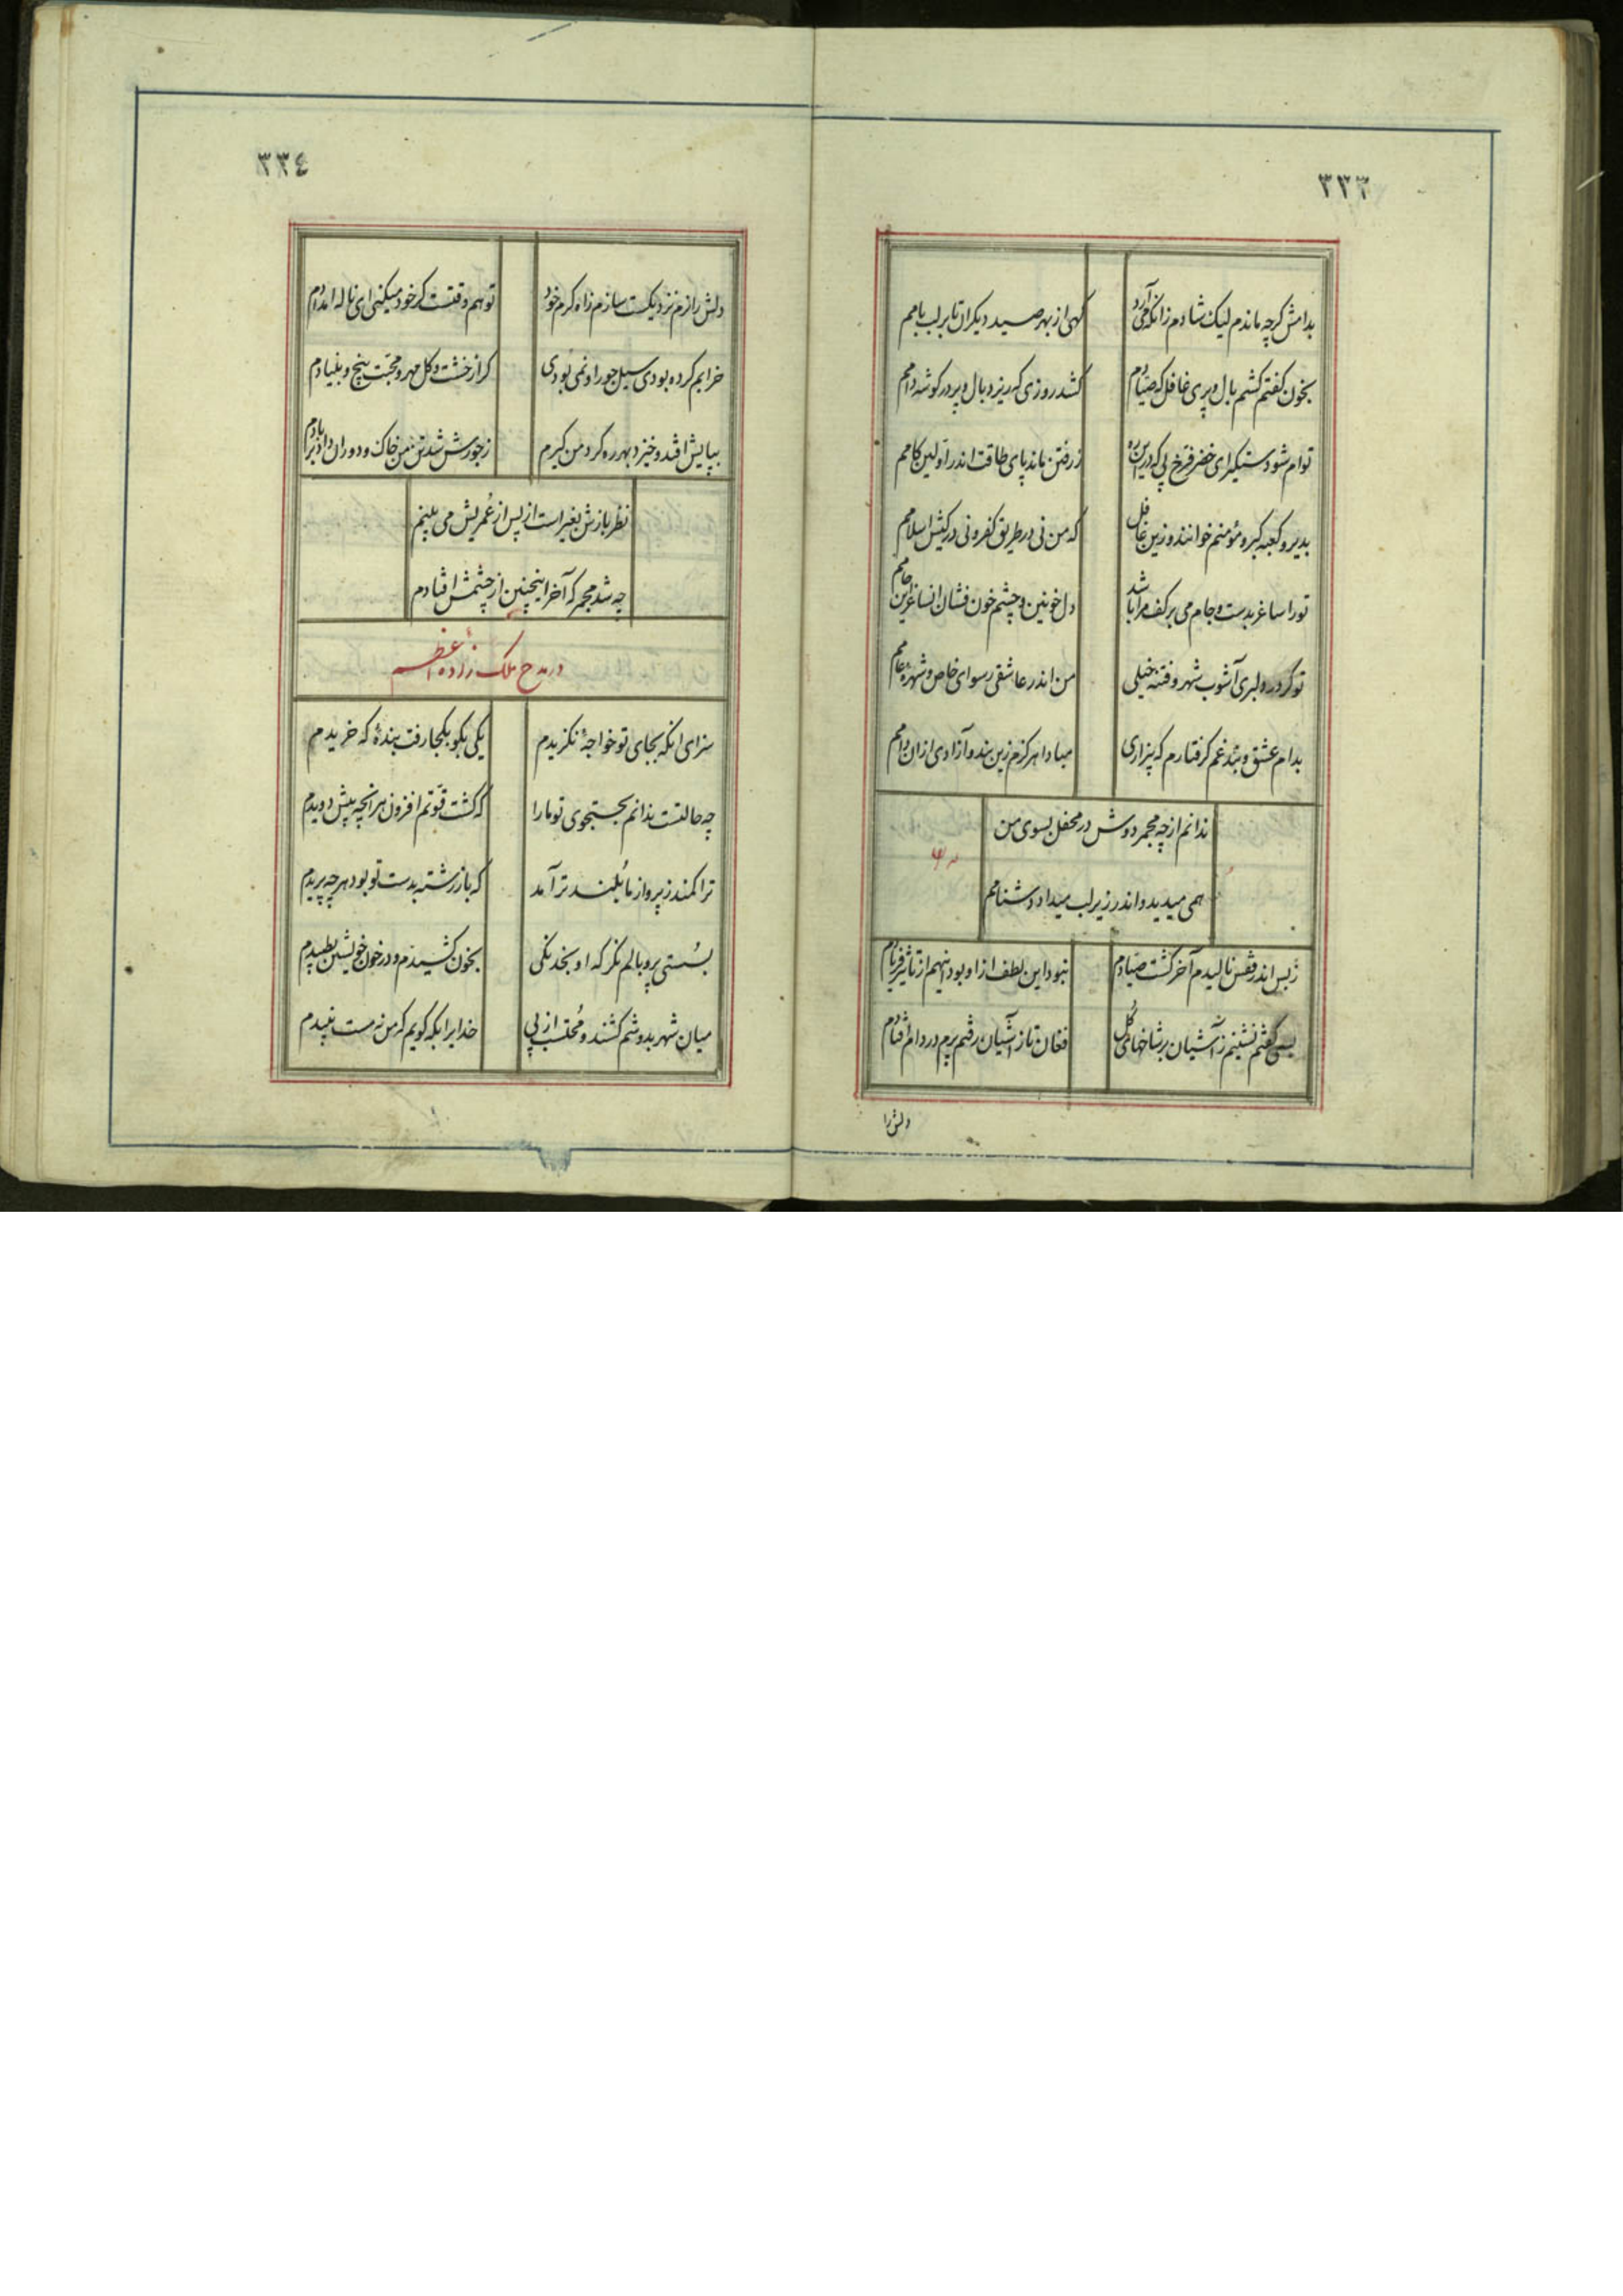 ٣٣٣
بدامش کرچه ماندم لیک شادم زانکه می‌آرد
کهی از بهر صید دیکران تا بر لب بامم
بخون کفتم کشم بال و پری غافل که صیادم
کشد روزی که ریزد بال و پر در کوشه دامم
توام شو دستکیر ای خضر فرخ پی که در این ره
ز رفتن ماند پای طاقت اندر اولین کامم
بدیر و کعبه کبر و مؤمنم خوانند و زین غافل
که من نی در طریق کفر و نی در کیش اسلامم
تو را ساغر بدست و جام می بر کف مرا باشد
دل خونین و چشم خون فشان آن ساغر این جامم
تو کر در دلبری آشوب شهر و فتنه خیلی
من اندر عاشقی رسوای خاص و شهره عامم
بدام عشق و بند غم کرفتارم که پنداری
مبادا هرکزم زین بند و آزادی از آن دامم
ندانم از چه مجمر دوش در محفل بسوی من
همی میدید و اندر زیر لب میداد دشنامم
ز بس اندر قفس نالیدم آخر کشت صیادم
نبود این لطف از او بود اینهم از تاثیر فریادم
بسی کفتم نشینم ز آشیان بر شاخهای کل
فغان تا ز آشیان رفتم پرم در دام افتادم
دلش را
٣٣٤
دلش را زم نزدیکست سازم ز آه کرم خود
تو هم وقتست کر خود میکنی ای ناله امدادم
خرابم کرده بودی سیل جور او نمی‌بودی
کر از خشت و کل مهر و محبت بیخ و بنیادم
بپایش افتد و خیزد بهر ره کرد من کیرم
ز جورش شد تن من خاک و دوران داد بر بادم
نظر بازش بغیر است از پس از عمریش می بینم
چه شد مجمر که آخر اینچنین از چشمش افتادم
در مدح ملک زاده اعظم
سزای انکه بجای تو خواجهٔ نکزیدم
یکی بکو بکجا رفت بندهٔ که خریدم
چه حالتست ندانم بجستجوی تو ما را
که کشت قوتم افزون هر آنچه پیش دویدم
ترا کمند ز پرواز ما بلند تر آمد
که باز رشته بدست تو بود هر چه پریدم
بسستی پر و بالم نکر که او بخدنکی
بخون کشیدم و در خون خویشتن نطپیدم
میان شهر بدوشم کشند و محتسب از پی
خدایرا بکه کویم که من نه مست نبیدم